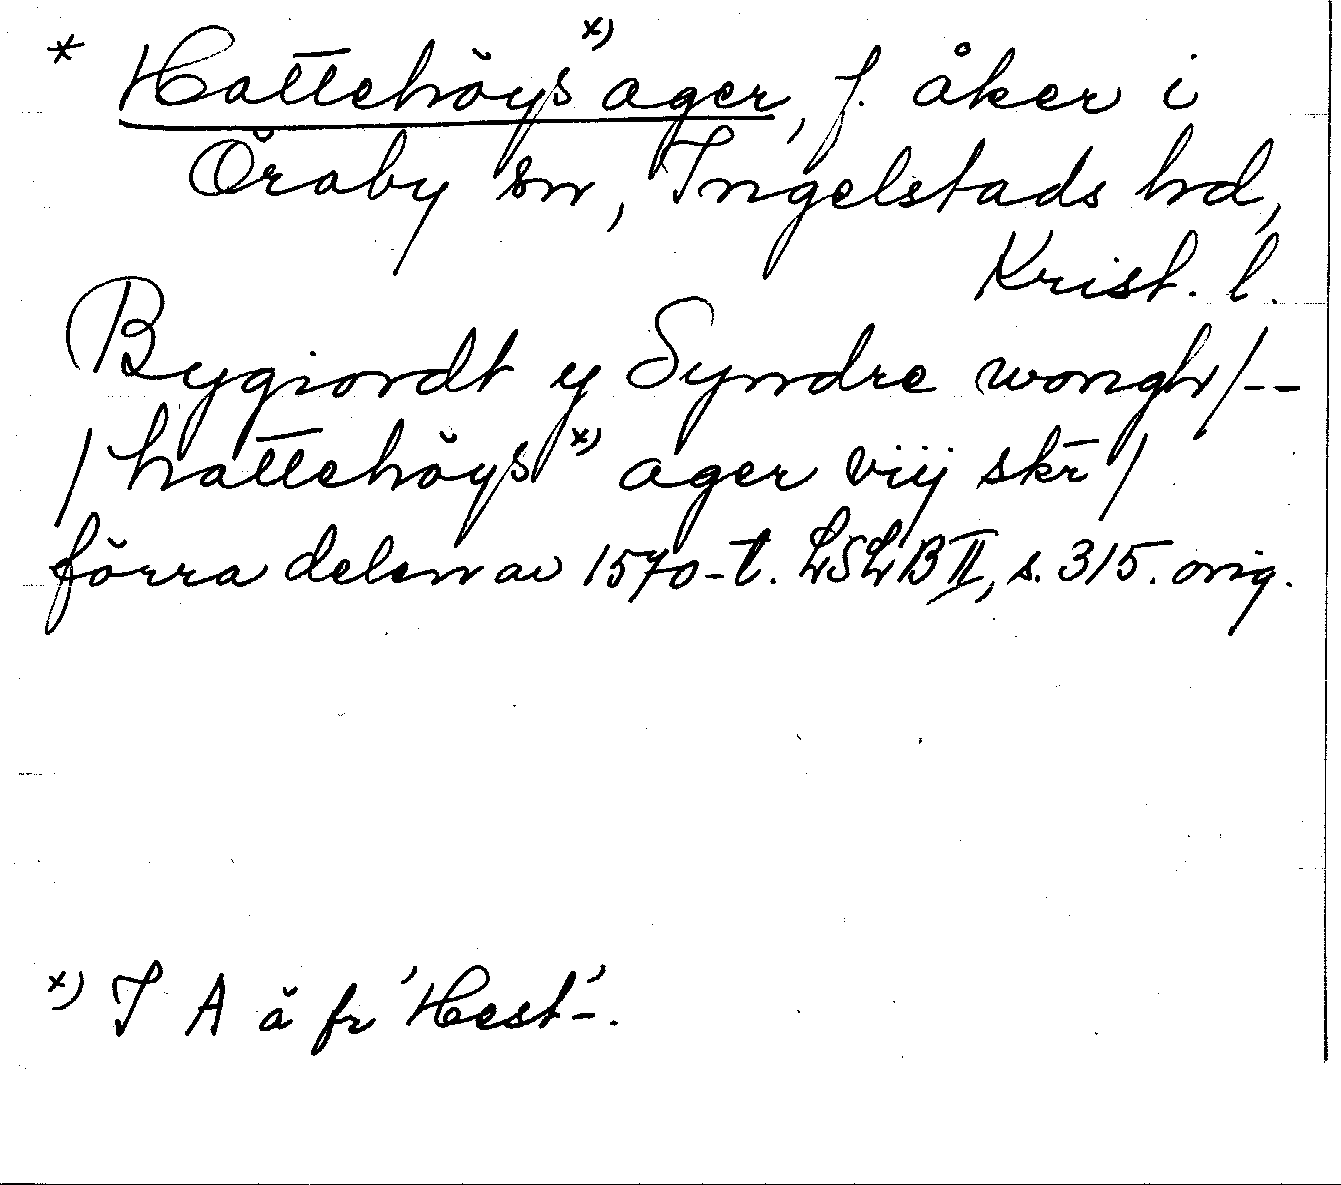 * Hattehöys x) ager, f. åker i
Öraby sn, Ingelstads hd,
Krist. l.
Bygiordt y Syndre wongh/--
/hattehöys x) ager viij skr/
förra delen av 1570-t. LSLB II, s. 315. orig.
x) I A ä fr 'Hest-'.